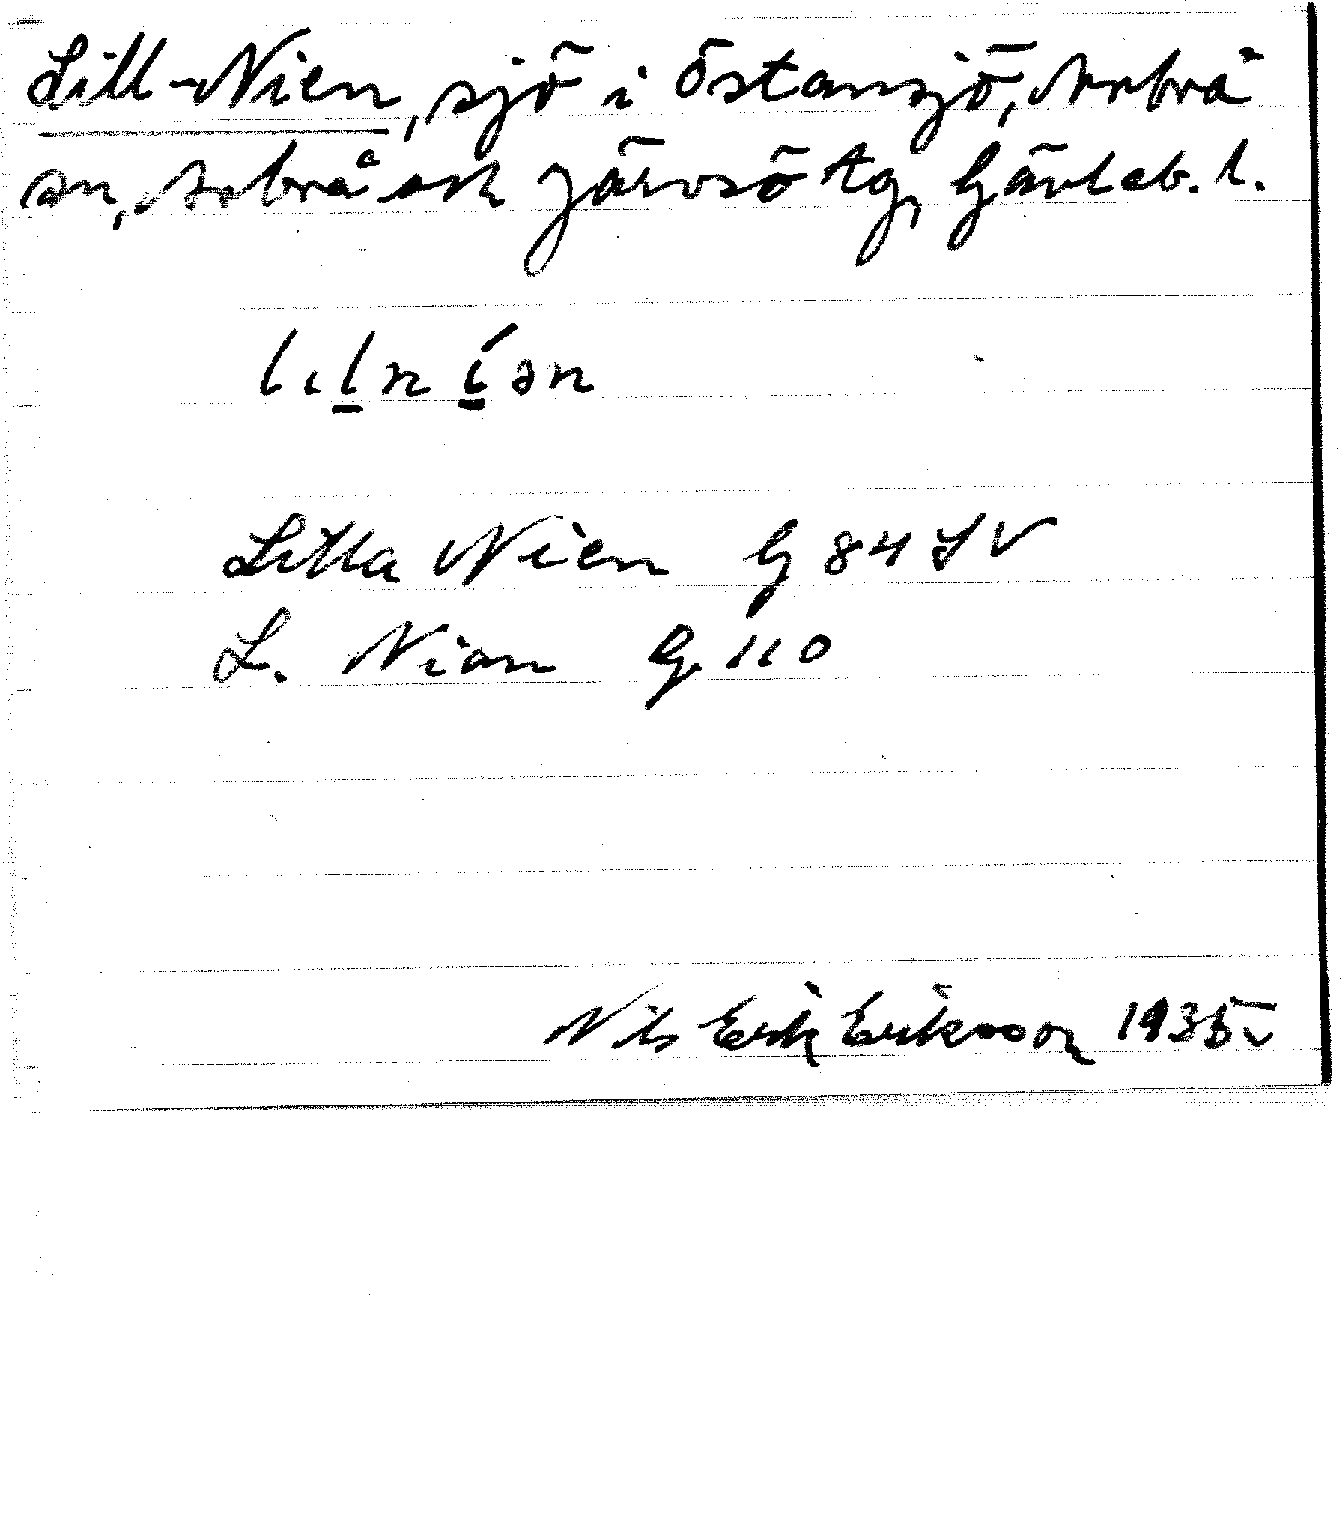 Lill-Nien, sjö i Östansjö, Arbrå
sn, Arbrå och Järvsö tg, Gävleb. l.
lıl̲ní̲ən
Lilla Nien G 84 SV
L. Nian G. 110
Nils Erik Eriksson 1935